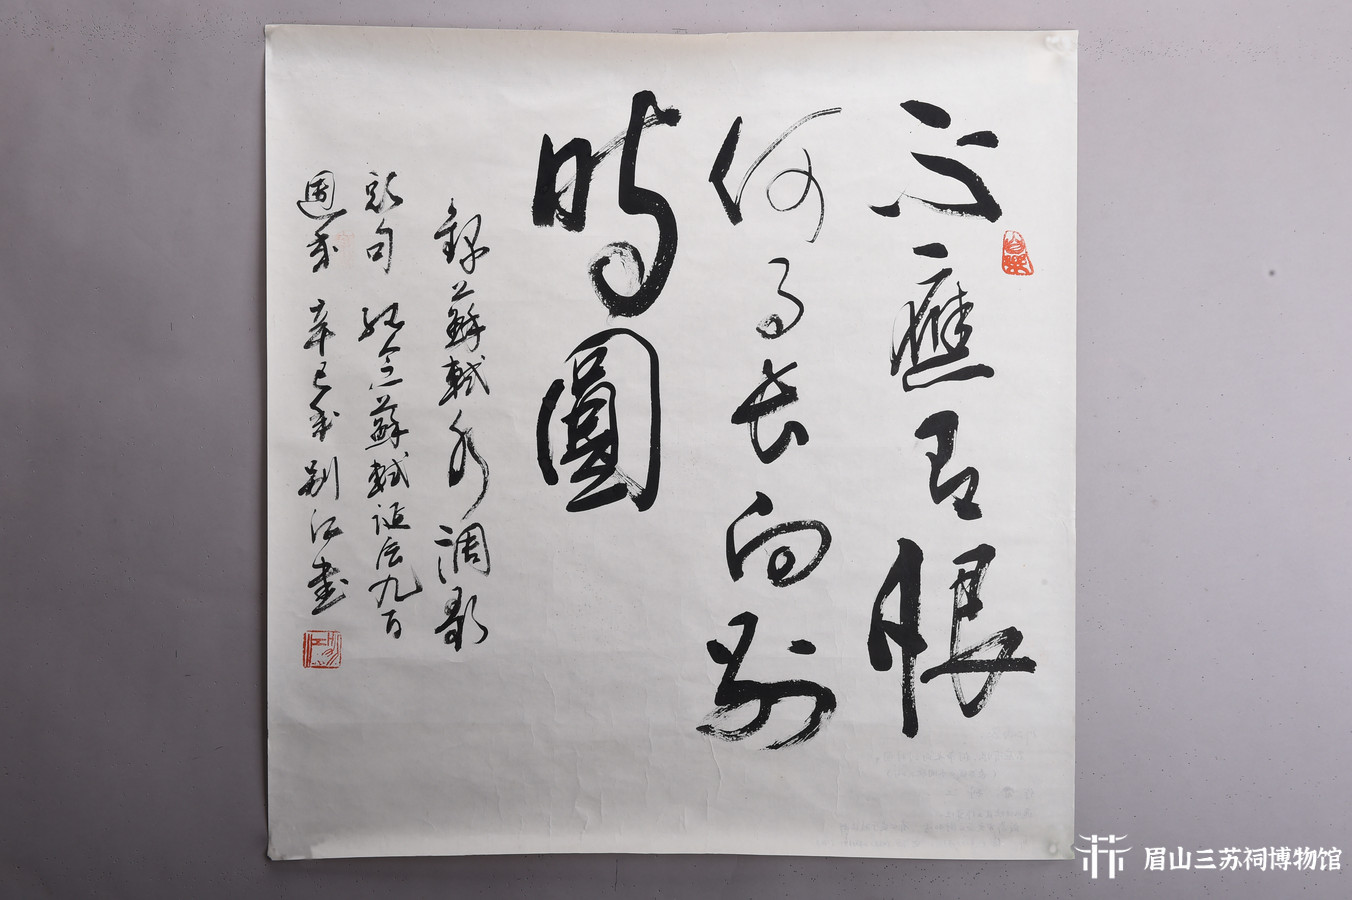 不應有恨
何事长向别
時圓
錄蘇軾水調歌
頭句 紀念蘇軾誕辰九百
週年 辛巳年 江書
眉山三苏祠博物馆